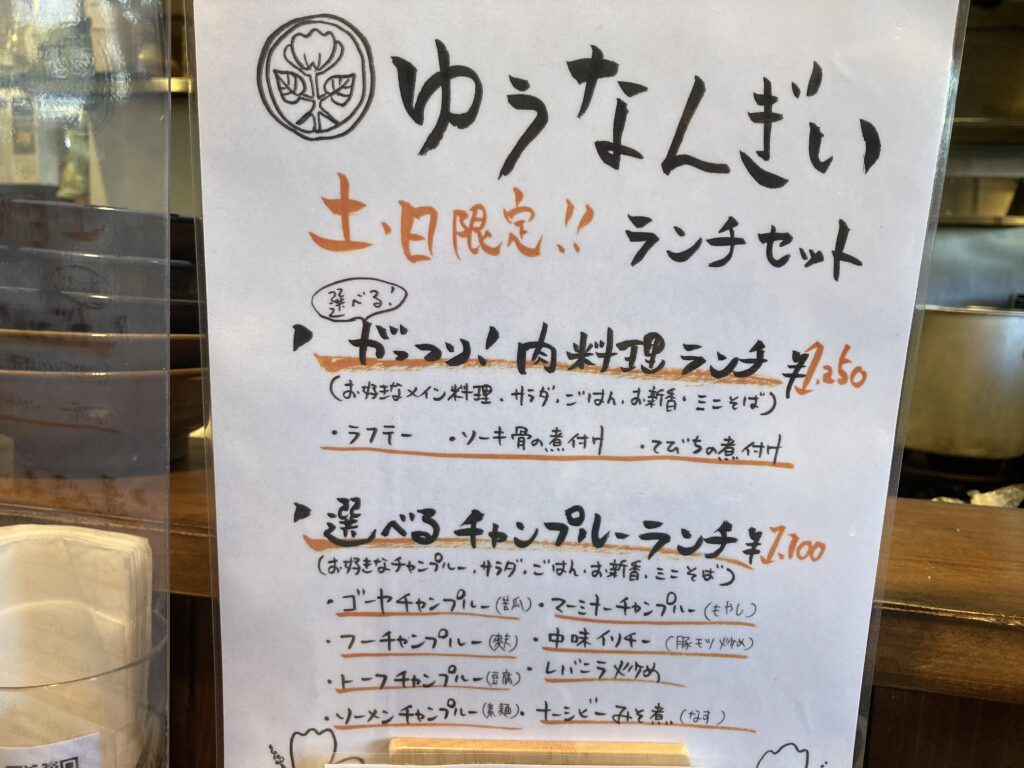 ゆうなんぎい
土・日限定!! ランチセット
選べる!
がっつり!肉料理ランチ ¥1,250
(お好きなメイン料理、サラダ、ごはん、お新香・ミニそば)
・ラフテー ・ソーキ骨の煮付け ・てびちの煮付け
選べるチャンプルーランチ ¥1,100
(お好きなチャンプルー、サラダ、ごはん、お新香、ミニそば)
・ゴーヤチャンプルー(苦瓜) ・マーミナーチャンプルー(もやし)
・フーチャンプルー(麩) ・中味イリチー(豚モツ炒め)
・トーフチャンプルー(豆腐) ・レバニラ炒め
・ソーメンチャンプルー(素麺) ・ナーシビーみそ煮(なす)